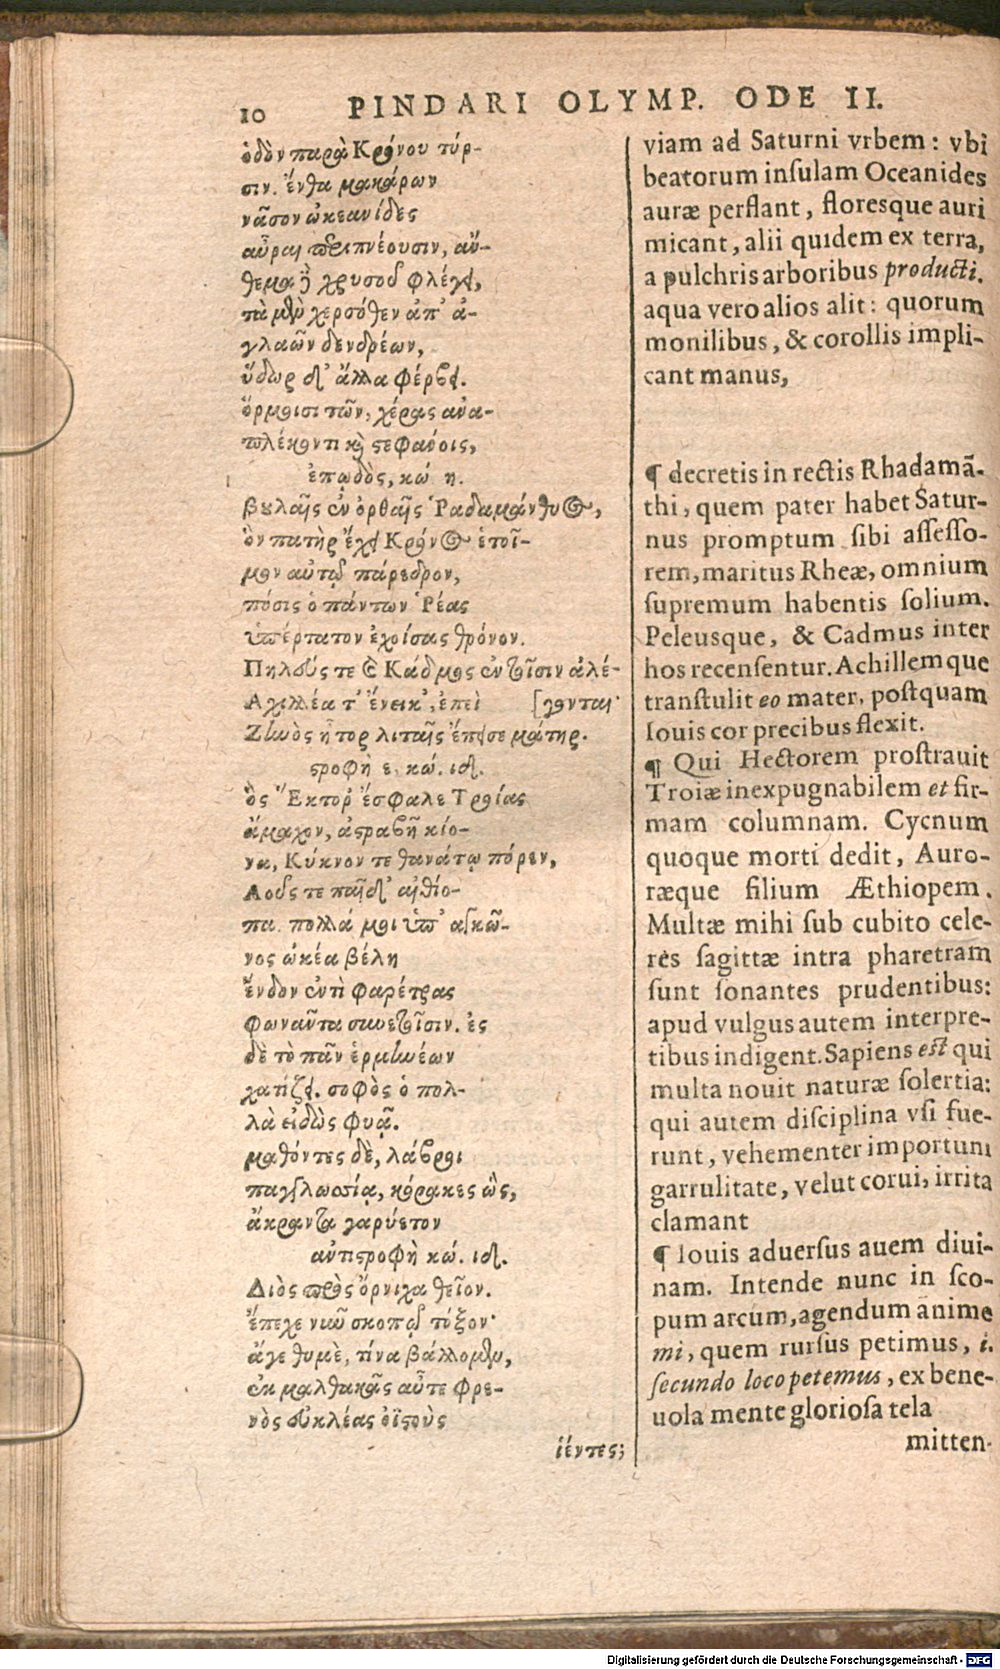 10 PINDARI OLYMP. ODE II.
ὁδὸν παρὰ Κρόνου τύρ-
σιν. ἔνθα μακάρων
νᾶσον ὠκεανίδες
αὖραι περιπνέουσιν, ἄν-
θεμα ἢ χρυσοῦ φλέγει,
τὰ μὲν χερσόθεν ἀπ' ἀ-
γλαῶν δενδρέων,
ὕδωρ δ' ἄλλα φέρβει.
ὅρμοισι τῶν, χέρας ἀνα-
πλέκοντι καὶ στεφάνοις,
ἐπῳδὸς, κώ. η.
βουλαῖς ἐν ὀρθαῖς Ῥαδαμάνθυος,
ὃν πατὴρ ἔχει Κρόνος ἑτοῖ-
μον αὐτῷ πάρεδρον,
πόσις ὁ πάντων Ῥέας
ὑπέρτατον ἐχοίσας θρόνον.
Πηλεύς τε καὶ Κάδμος ἐν τοῖσιν ἀλέ-
Ἀχιλλέα τ' ἔνεικ', ἐπεὶ [γονται·
Ζηνὸς ἦτορ λιταῖς ἔπεισε μάτηρ.
στροφὴ ε. κώ. ιδ.
ὃς Ἕκτορ' ἔσφαλε Τροίας
ἄμαχον, ἀστραβῆ κίο-
να, Κύκνον τε θανάτῳ πόρεν,
Ἀοῦς τε παῖδ' αἰθίο-
πα. πολλά μοι ὑπ' ἀγκῶ-
νος ὠκέα βέλη
ἔνδον ἐντὶ φαρέτρας
φωναῦντα συνετοῖσιν. ἐς
δὲ τὸ πᾶν ἑρμηνέων
χατίζει. σοφὸς ὁ πολ-
λὰ εἰδὼς φυᾷ.
μαθόντες δὲ, λάβροι
παγγλωσίᾳ, κόρακες ὣς,
ἄκραντα γαρύετον
ἀντιστροφὴ κώ. ιδ.
Διὸς πρὸς ὄρνιχα θεῖον.
ἔπεχε νῦν σκοπῷ τόξον·
ἄγε θυμὲ, τίνα βάλλομεν,
ἐκ μαλθακᾶς αὖτε φρε-
νὸς εὐκλέας ὀϊστοὺς
ἱέντες;
viam ad Saturni vrbem: vbi
beatorum insulam Oceanides
auræ perflant, floresque auri
micant, alii quidem ex terra,
a pulchris arboribus producti.
aqua vero alios alit: quorum
monilibus, & corollis impli-
cant manus,
¶ decretis in rectis Rhadamã-
thi, quem pater habet Satur-
nus promptum sibi assesso-
rem, maritus Rheæ, omnium
supremum habentis solium.
Peleusque, & Cadmus inter
hos recensentur. Achillemque
transtulit eo mater, postquam
Iouis cor precibus flexit.
¶ Qui Hectorem prostrauit
Troiæ inexpugnabilem et fir-
mam columnam. Cycnum
quoque morti dedit, Auro-
ræque filium Æthiopem.
Multæ mihi sub cubito cele-
res sagittæ intra pharetram
sunt sonantes prudentibus:
apud vulgus autem interpre-
tibus indigent. Sapiens est qui
multa nouit naturæ solertia:
qui autem disciplina vsi fue-
runt, vehementer importuni
garrulitate, velut corui, irrita
clamant
¶ Iouis aduersus auem diui-
nam. Intende nunc in sco-
pum arcum, agendum anime
mi, quem rursus petimus, i.
secundo loco petemus, ex bene-
uola mente gloriosa tela
mitten-
Digitalisierung gefördert durch die Deutsche Forschungsgemeinschaft - DFG